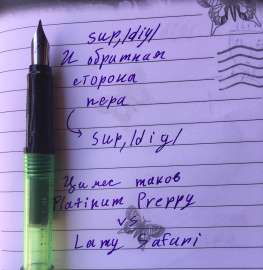 sup,/diy/
И обритная
сторона
пера
sup,/diy/
Цимес таков
Platinum Preppy
vs
Lamy Safari